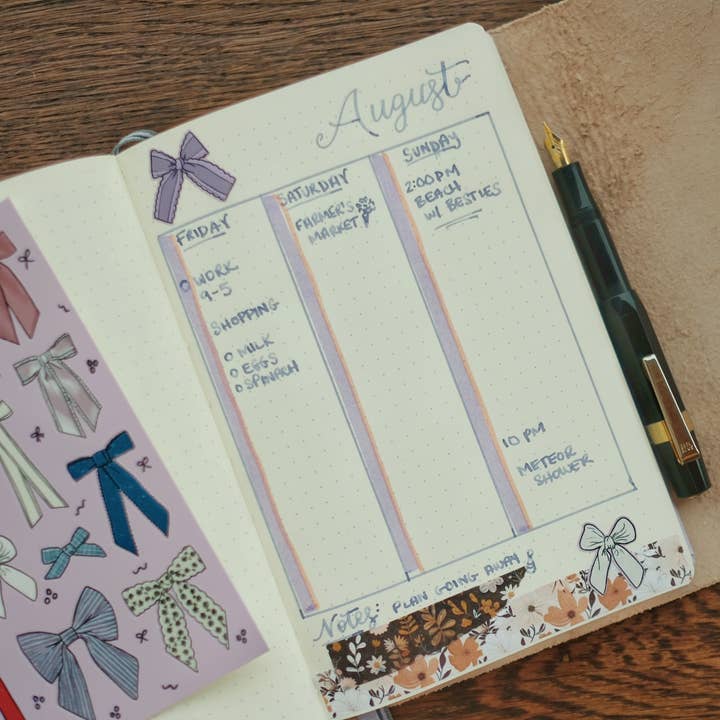 August
FRIDAY
O WORK
9-5
SHOPPING
O MILK
O EGGS
O SPINACH
SATURDAY
FARMER'S
MARKET
SUNDAY
2:00 PM
BEACH
W/ BESTIES
10 PM
METEOR
SHOWER
Notes: PLAN GOING AWAY